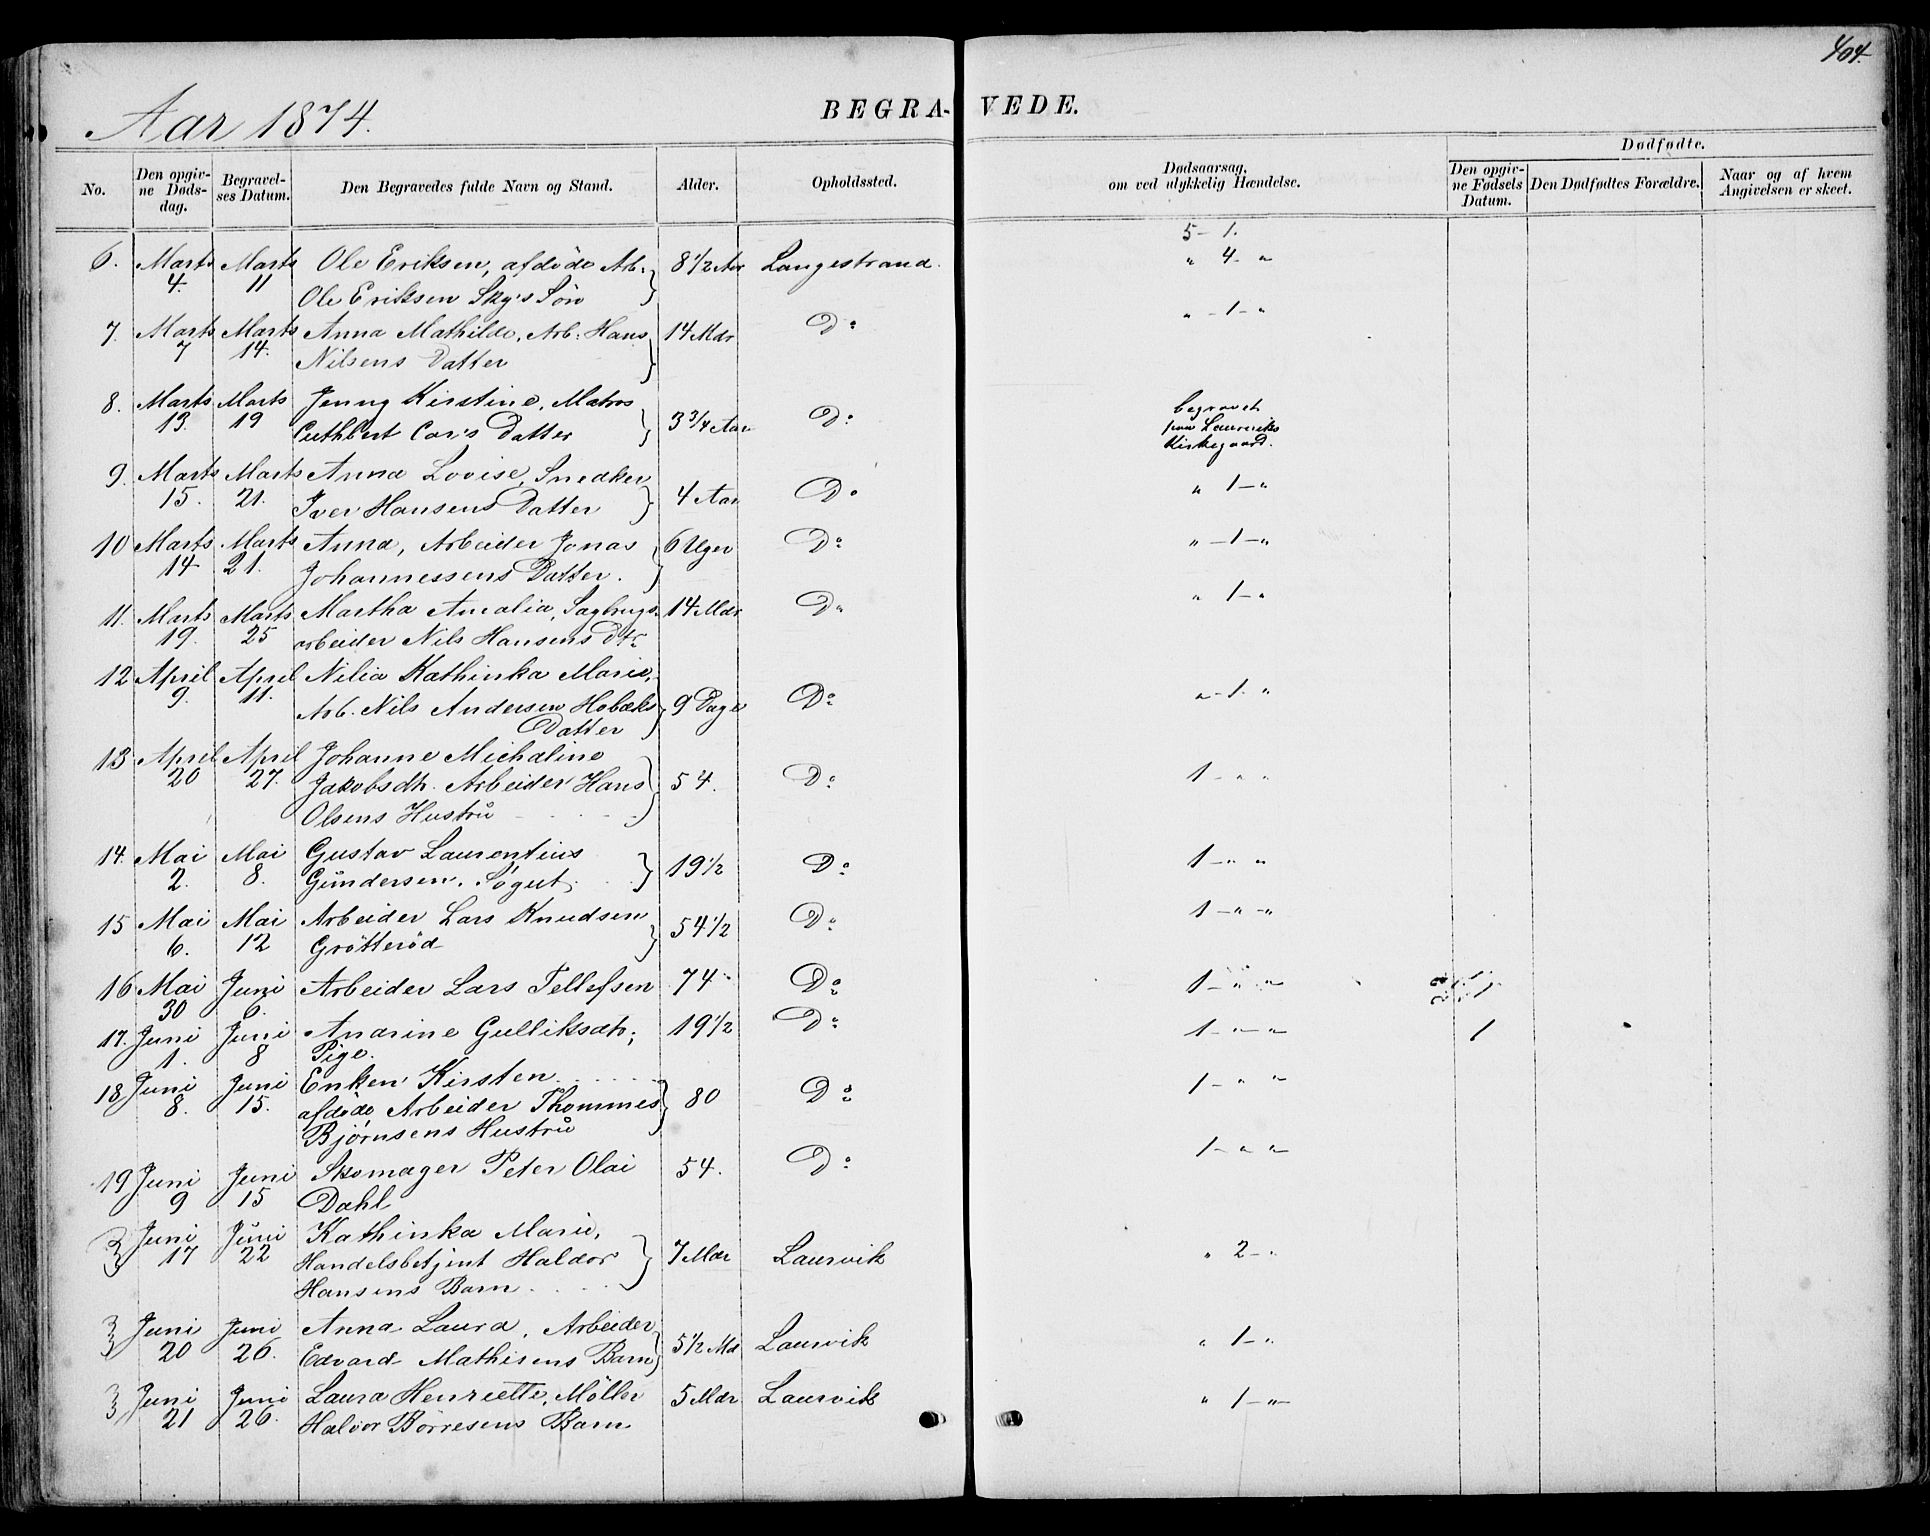 404.
Aar 1874.
BEGRA- VEDE.
No.
Den opgiv-
ne Døds-
dag.
Begravel-
ses Datum.
Den Begravedes fulde Navn og Stand.
Alder.
Opholdssted.
Dødsaarsag,
om ved ulykkelig Hændelse.
Dødfødte.
Den opgiv-
ne Fødsels
Datum.
Den Dødfødtes Forældre.
Naar og af hvem
Angivelsen er skeet.
5 - 1.
6. Marts Marts Ole Eriksen, afdöde Arb. 8 1/2 Aar Langestrand. " 4 - "
4. 11 Ole Eriksen Sky's Sön
7. Marts Marts Anna Mathilde, Arb. Hans 14 Mdr Do " - 1 - "
7 14. Nilsens Datter
8. Marts Marts Jenny Kirstine, Matros 3 3/4 Aar Do begravet
13. 19 Cuthbert Cor's Datter paa Laurviks
Kirkegaard.
9. Marts Marts Anna Lovise, Snedker 4 Aar Do " 1 - "
15. 21. Iver Hansens Datter
10 Marts Marts Anna, Arbeider Jonas 6 Uger Do " - 1 - "
14 21. Johannessens Datter.
11. Marts Marts Martha Amalia, Sagbrugs- 14 Mdr Do " 1 - "
19. 25 arbeider Nils Hansens Dtr
12 April April Nilia Kathinka Marie,
9. 11. Arb. Nils Andersen Hobæks 9 Dage Do " - 1. "
Datter
13 April April Johanne Michaline
20 27. Jakobsdtr. Arbeider Hans 54. Do 1 - " "
Olsens Hustru
14. Mai Mai Gustav Laurentius 19 1/2 Do 1 - " "
2. 8. Gundersen. Søgut
15 Mai Mai Arbeider Lars Knudsen 54 1/2 Do 1 - " - "
6. 12 Grötteröd
16 Mai Juni Arbeider Lars Tellefsen 74 Do 1 - " "
30 6.
17. Juni Juni Andrine Gulliksdtr, 19 1/2 Do 1 - " - " 1
1. 8 Pige.
18 Juni Juni Enken Kirsten
8. 15. afdöde Arbeider Thommes 80 Do 1 - " "
Bjørnsens Hustru
19 Juni Juni Skomager Peter Olai 54. Do 1 - " "
9 15 Dahl
Juni Juni Kathinka Marie,
17 22 Handelsbetjent Haldor 7 Mdr Laurvik " 2 - "
Hansens Barn
Juni Juni Anna Laura, Arbeider
20 26. Edvard Mathisens Barn 5 1/2 Md Laurvik " 1 - "
Juni Juni Laura Henriette, Möller 5 Mdr Laurvik " 1 - "
21 26. Halvor Börresens Barn